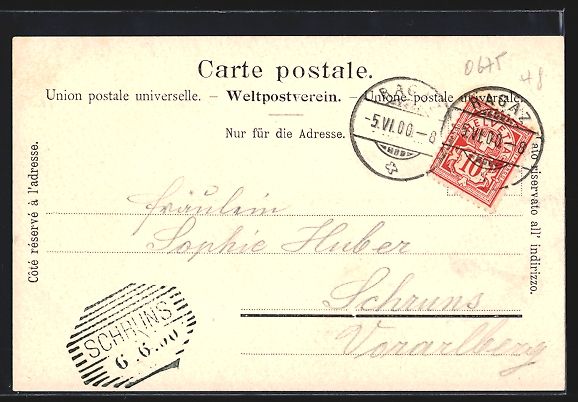 0675
48
Carte postale.
Union postale universelle. – Weltpostverein. – Unione postale universale.
Nur für die Adresse.
RAGAZ
-5.VI.00.-8
RAGAZ
-5.VI.00.-8
HELVETIA
10
Côté réservé à l'adresse.
Lato riservato all' indirizzo.
Fräulein
Sophie Huber
Schruns
Vorarlberg
SCHRUNS
6.6.00